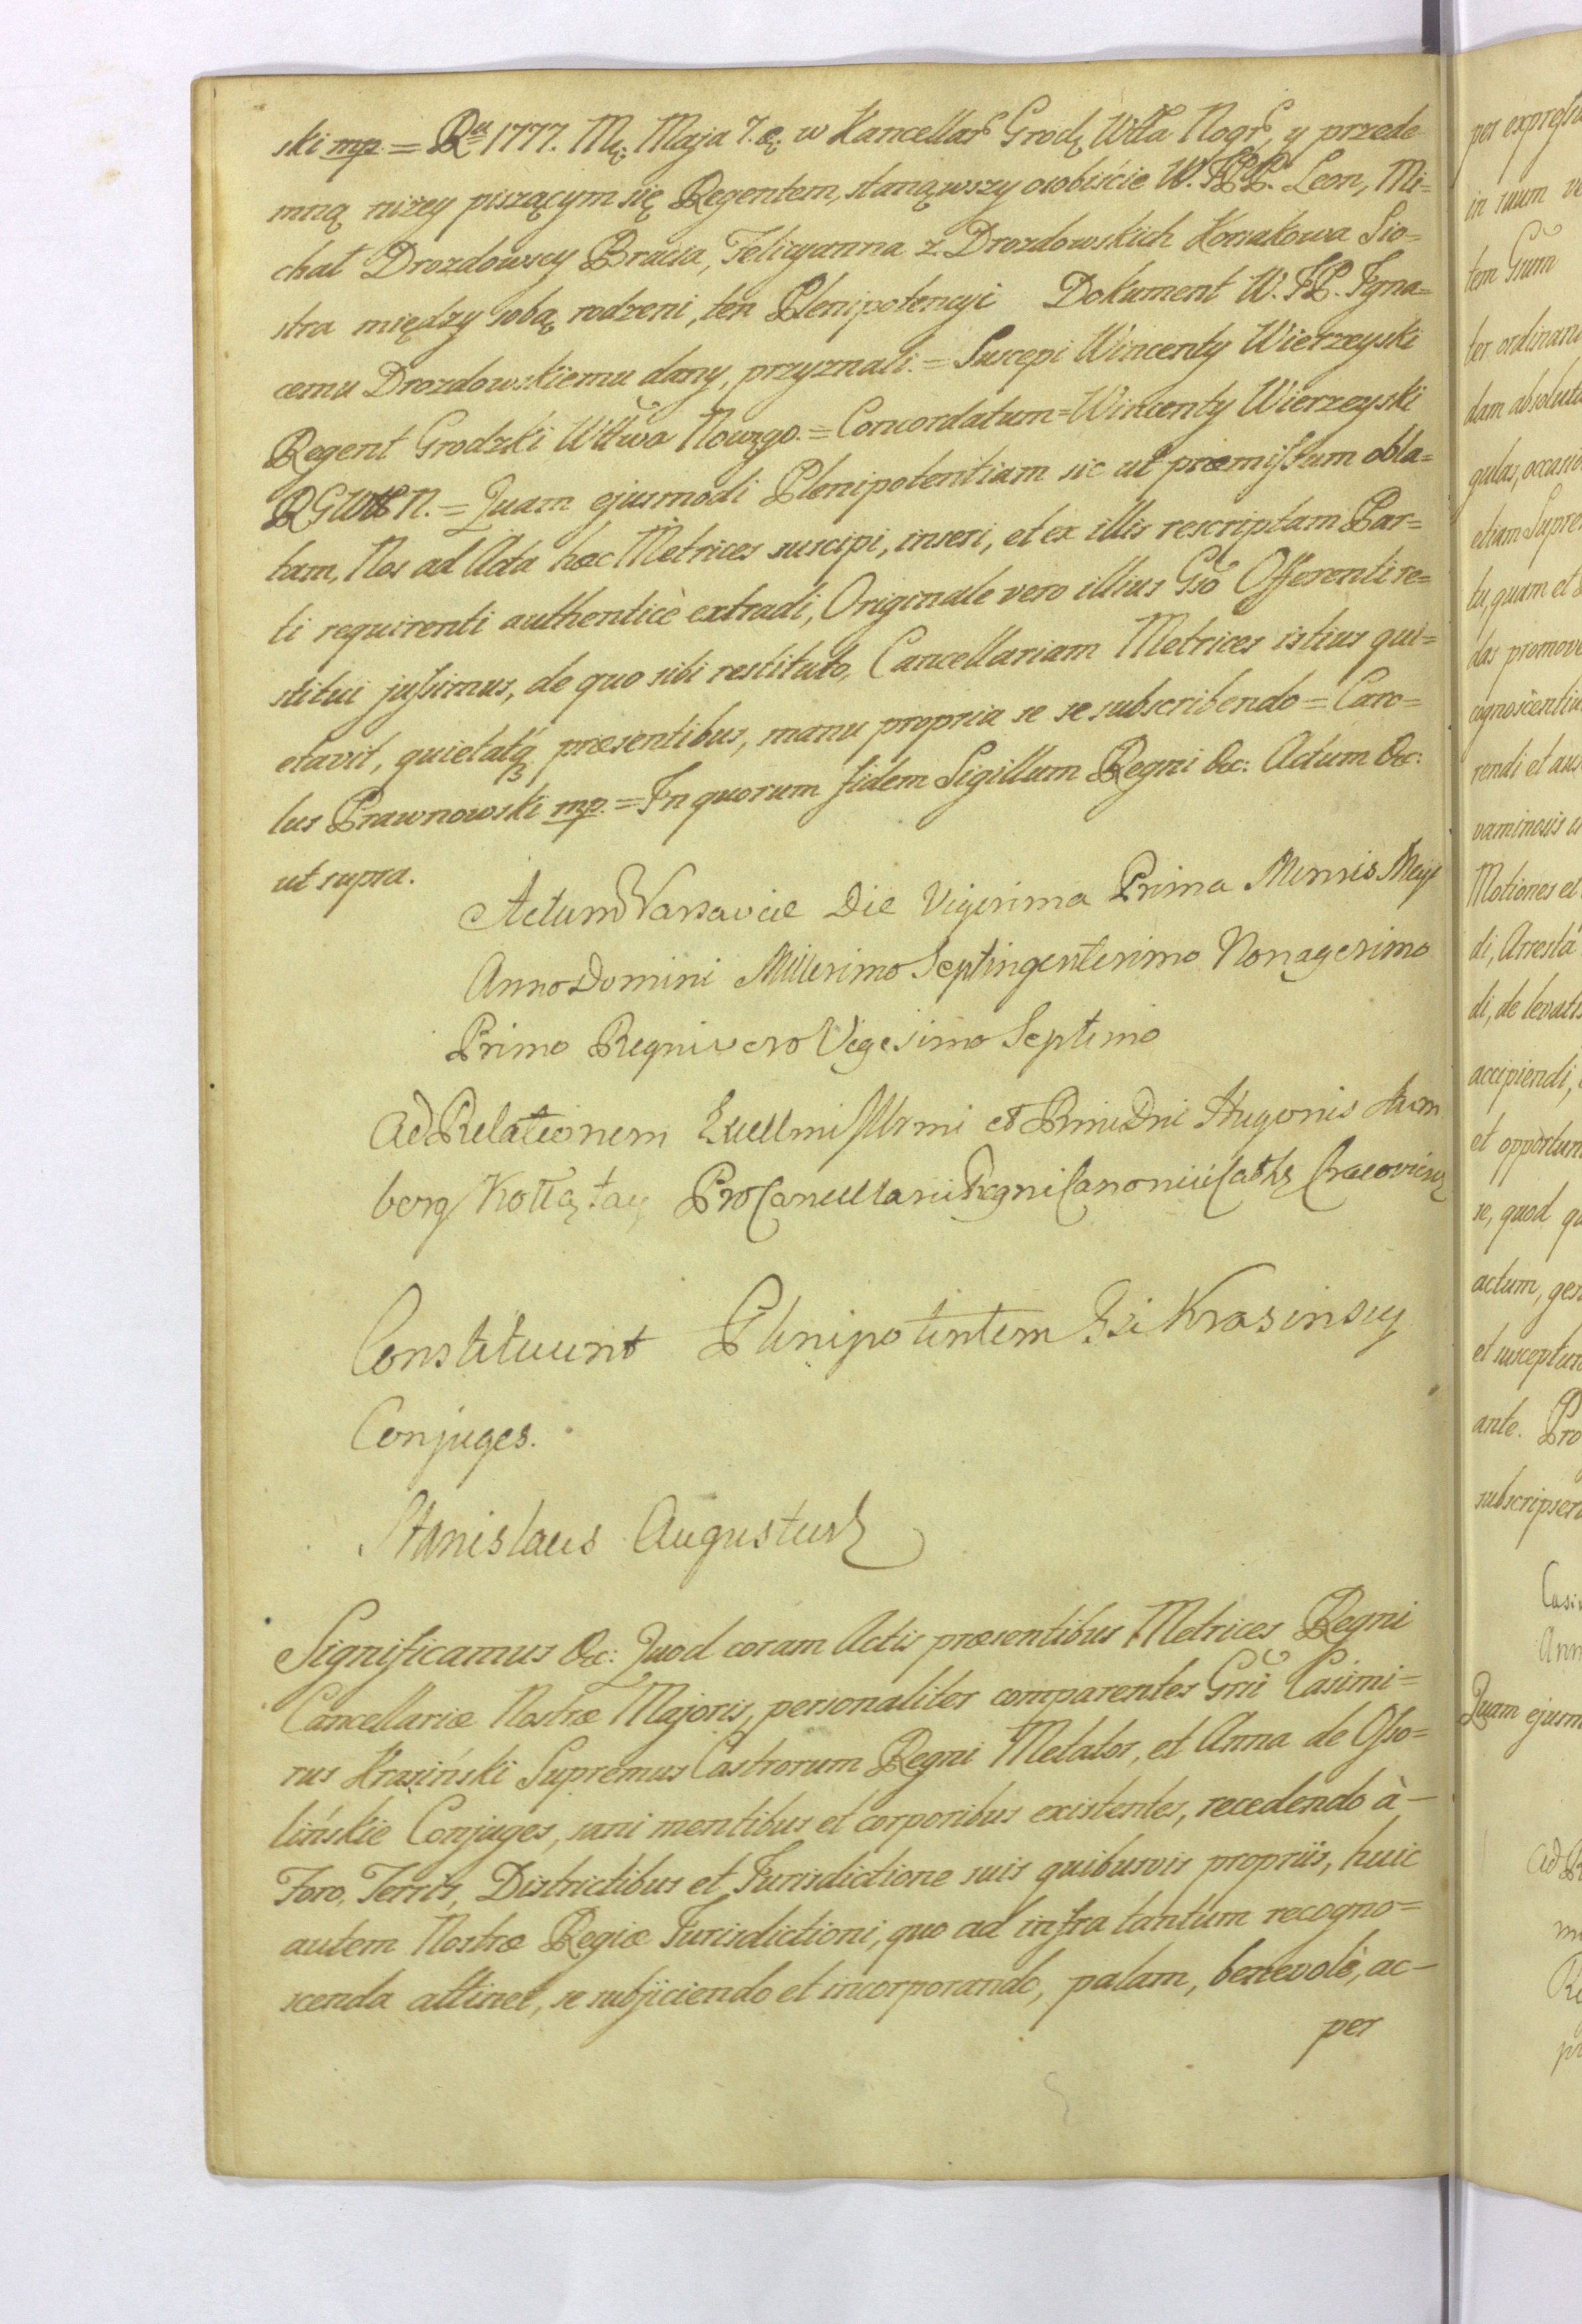 ski mp. = Ru 1777. Mca Maja 7. d. w Kancellar: Grodz. Wttа Nogr. y przede
mną niżey piszącym się Regentem, stanąwszy osobiście W. JPP. Leon, Mi=
chał Drozdowscy Bracia, Felicyanna z Drozdowskich Korsakowa Sio=
stra między sobą rodzeni, ten Plenipotencyi Dokument W. JP. Igna=
cemu Drozdowskiemu dany, przyznali. = Suscepi Wincenty Wierzeyski
Regent Grodzki Wttwa Nowgo. = Concordatum = Wincenty Wierzeyski
RGWttN. = Quam ejusmodi Plenipotentiam sic ut præmissum obla=
tam, Nos ad Acta hæc Metrices suscipi, inseri, et ex illis rescriptam Par=
ti requirenti authenticè extradi, Originale vero illius Gso Offerenti re=
stitui jussimus, de quo sibi restituto, Cancellariam Metrices istius qui=
etavit, quietatq3 præsentibus, manu propria se se subscribendo = Caro=
lus Prawnowski mp. = In quorum fidem Sigillum Regni &c: Actum &c:
ut supra.
Actum Varsaviæ Die Vigesima Prima Mensis Maij
Anno Domini Millesimo Septingentesimo Nonagesimo
Primo Regni vero Vigesimo Septimo
Ad Relationem Excellmi Illrmi et Rmi Dni Hugonis Stum
berg Kołłątay Pro Cancellarii Regni Canonici Cathis Cracovien
Constituunt Plenipotentem Gsi Krasinscy
Conjuges.
Stanislaus Augustus R
Significamus &c: Quod coram Actis præsentibus Metrices Regni
Cancellariæ Nostræ Majoris, personaliter comparentes Gsi Casimi=
rus Krasiński Supremus Castrorum Regni Metator, et Anna de Osso=
lińskie Conjuges, sani mentibus et corporibus existentes, recedendo à
Foro, Terris, Districtibus et Jurisdictione suis quibusvis propriis, huic
autem Nostræ Regiæ Jurisdictioni, quo ad infra tantùm recogno=
scenda attinet, se subjiciendo et incorporando, palam, benevolè, ac
per